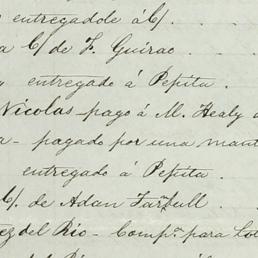 entregadole á C/.
a C/ de F. Guirao.
entregado á Pepita.
Nicolas - pago á M. Healy
a - pagado por una mant
entregado á Pepita.
C/. de Adan Tarnbull.
ez del Rio - Comp.ⁿ para